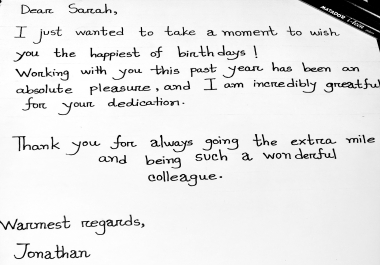 Dear Sarah,
MATADOR i-teen
I just wanted to take a moment to wish
you the happiest of birthdays!
Working with you this past year has been an
absolute pleasure, and I am incredibly greatful
for your dedication.
Thank you for always going the extra mile
and being such a wonderful
colleague.
Warmest regards,
Jonathan